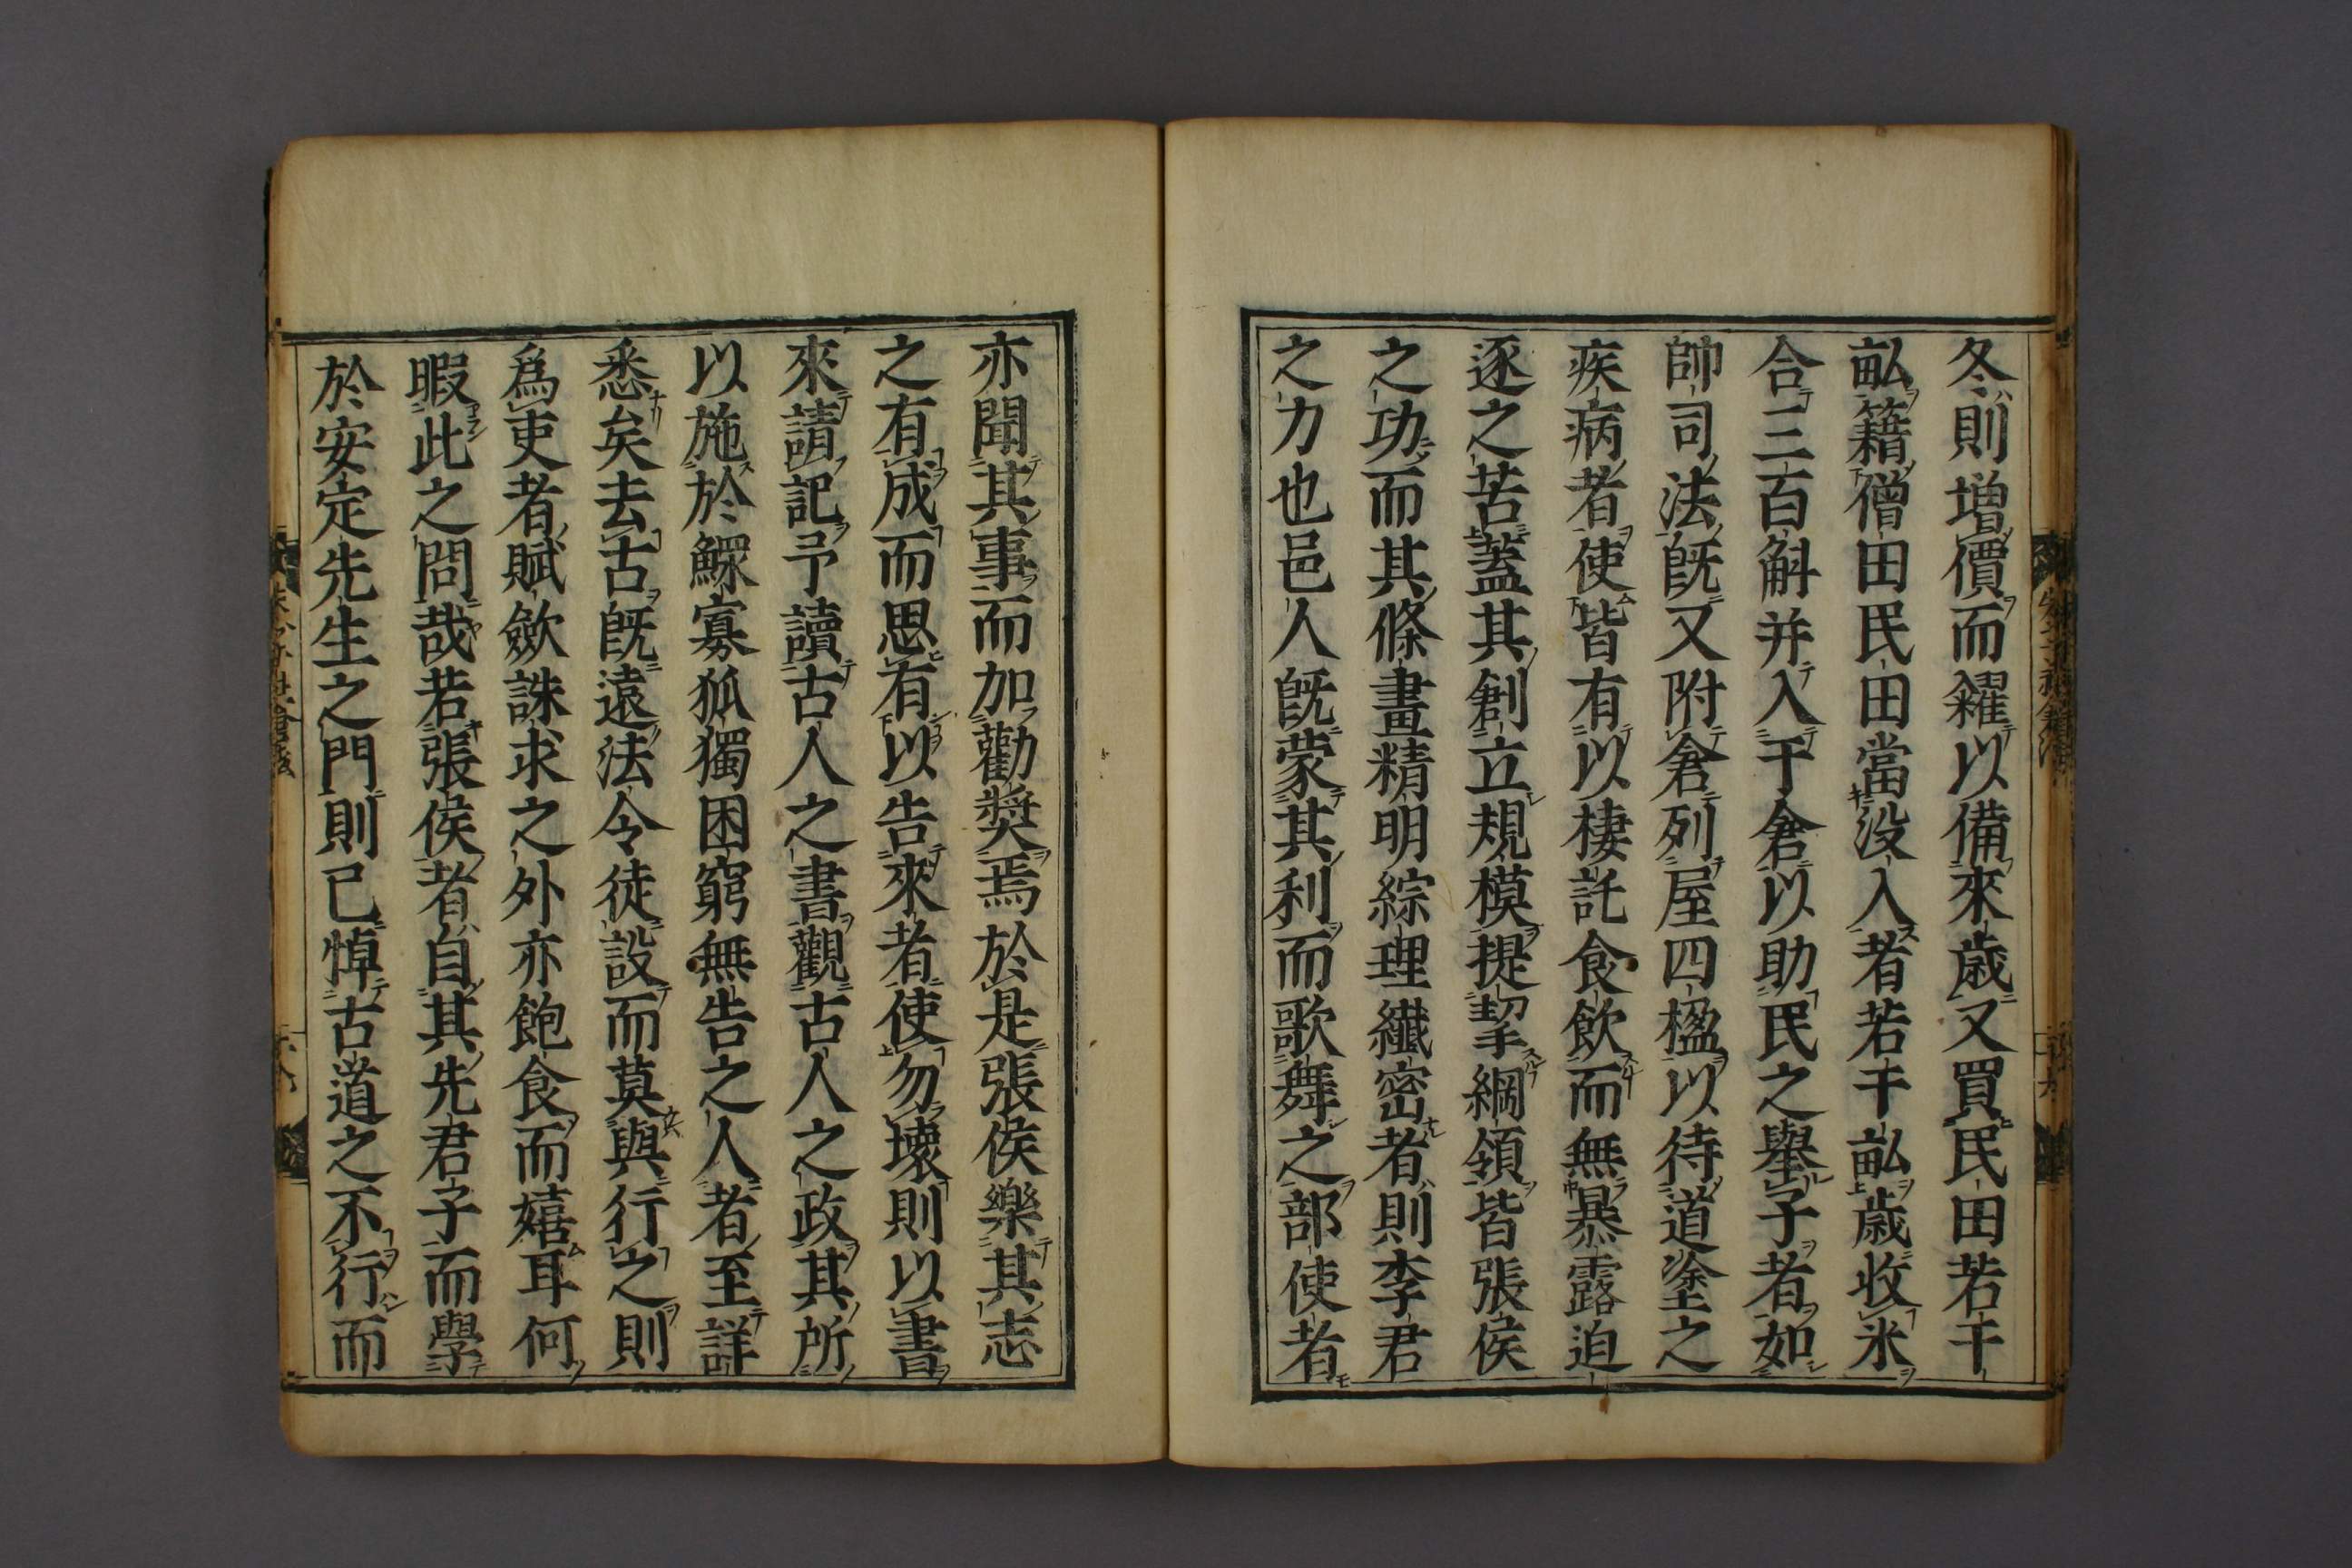 冬則増價而糴以備來歲又買民田若干
畝籍僧田民田當没入者若干畝歲收米
合三百斛并入于倉以助民之舉子者如
帥司法既又附倉列屋四楹以待道塗之
疾病者使皆有以棲託食飲而無暴露迫
逐之苦蓋其創立規模提挈綱領皆張侯
之功而其條畫精明綜理纖密者則李君
之力也邑人既蒙其利而歌舞之部使者
亦聞其事而加勸奬焉於是張侯樂其志
之有成而思有以告來者使勿壊則以書
來請記予讀古人之書觀古人之政其所
以施於鰥寡孤獨困窮無告之人者至詳
悉矣去古既遠法令徒設而莫與行之則
爲吏者賦斂誅求之外亦飽食而嬉耳何
暇此之問哉若張侯者自其先君子而學
於安定先生之門則已悼古道之不行而